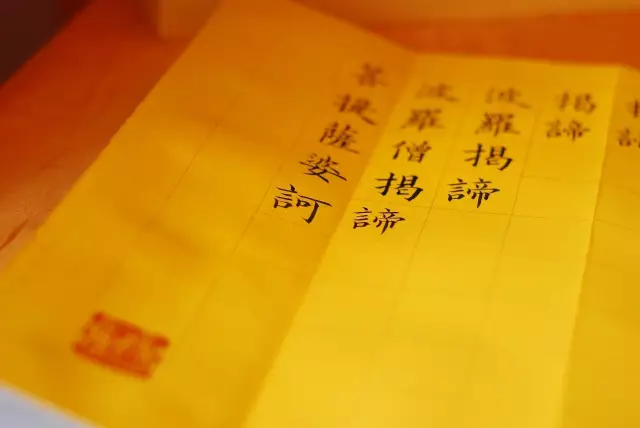 揭諦
揭諦
波羅揭諦
波羅僧揭諦
菩提薩婆訶